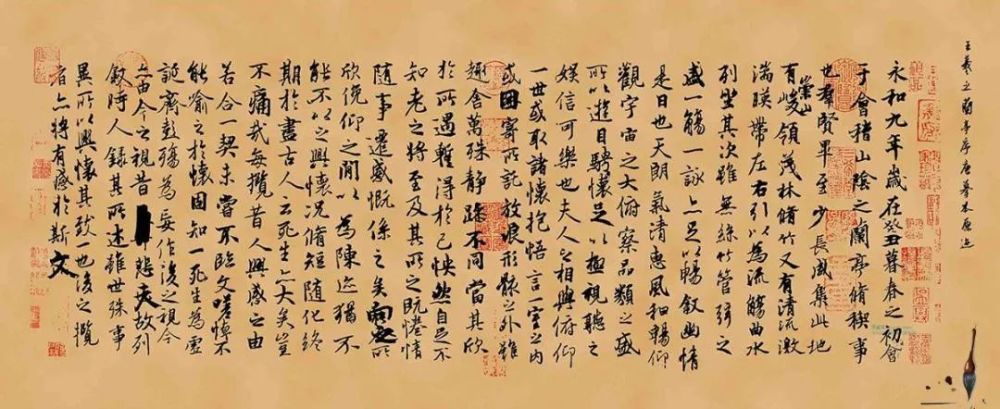 王羲之蘭亭序唐摹本原迹
永和九年歲在癸丑暮春之初會
于會稽山陰之蘭亭脩稧事
也群賢畢至少長咸集此地
有崇山峻領茂林脩竹又有清流激
湍暎帶左右引以為流觴曲水
列坐其次雖無絲竹管弦之
盛一觴一詠亦足以暢敘幽情
是日也天朗氣清惠風和暢仰
觀宇宙之大俯察品類之盛
所以遊目騁懷足以極視聽之
娛信可樂也夫人之相與俯仰
一世或取諸懷抱悟言一室之內
或因寄所託放浪形骸之外雖
趣舍萬殊靜躁不同當其欣
於所遇暫得於己怏然自足不
知老之將至及其所之既惓情
隨事遷感慨係之矣向之所
欣俛仰之閒以為陳迹猶不
能不以之興懷況脩短隨化終
期於盡古人云死生亦大矣豈
不痛哉每攬昔人興感之由
若合一契未嘗不臨文嗟悼不
能喻之於懷固知一死生為虛
誕齊彭殤為妄作後之視今
亦由今之視昔悲夫故列
敘時人錄其所述雖世殊事
異所以興懷其致一也後之攬
者亦將有感於斯文